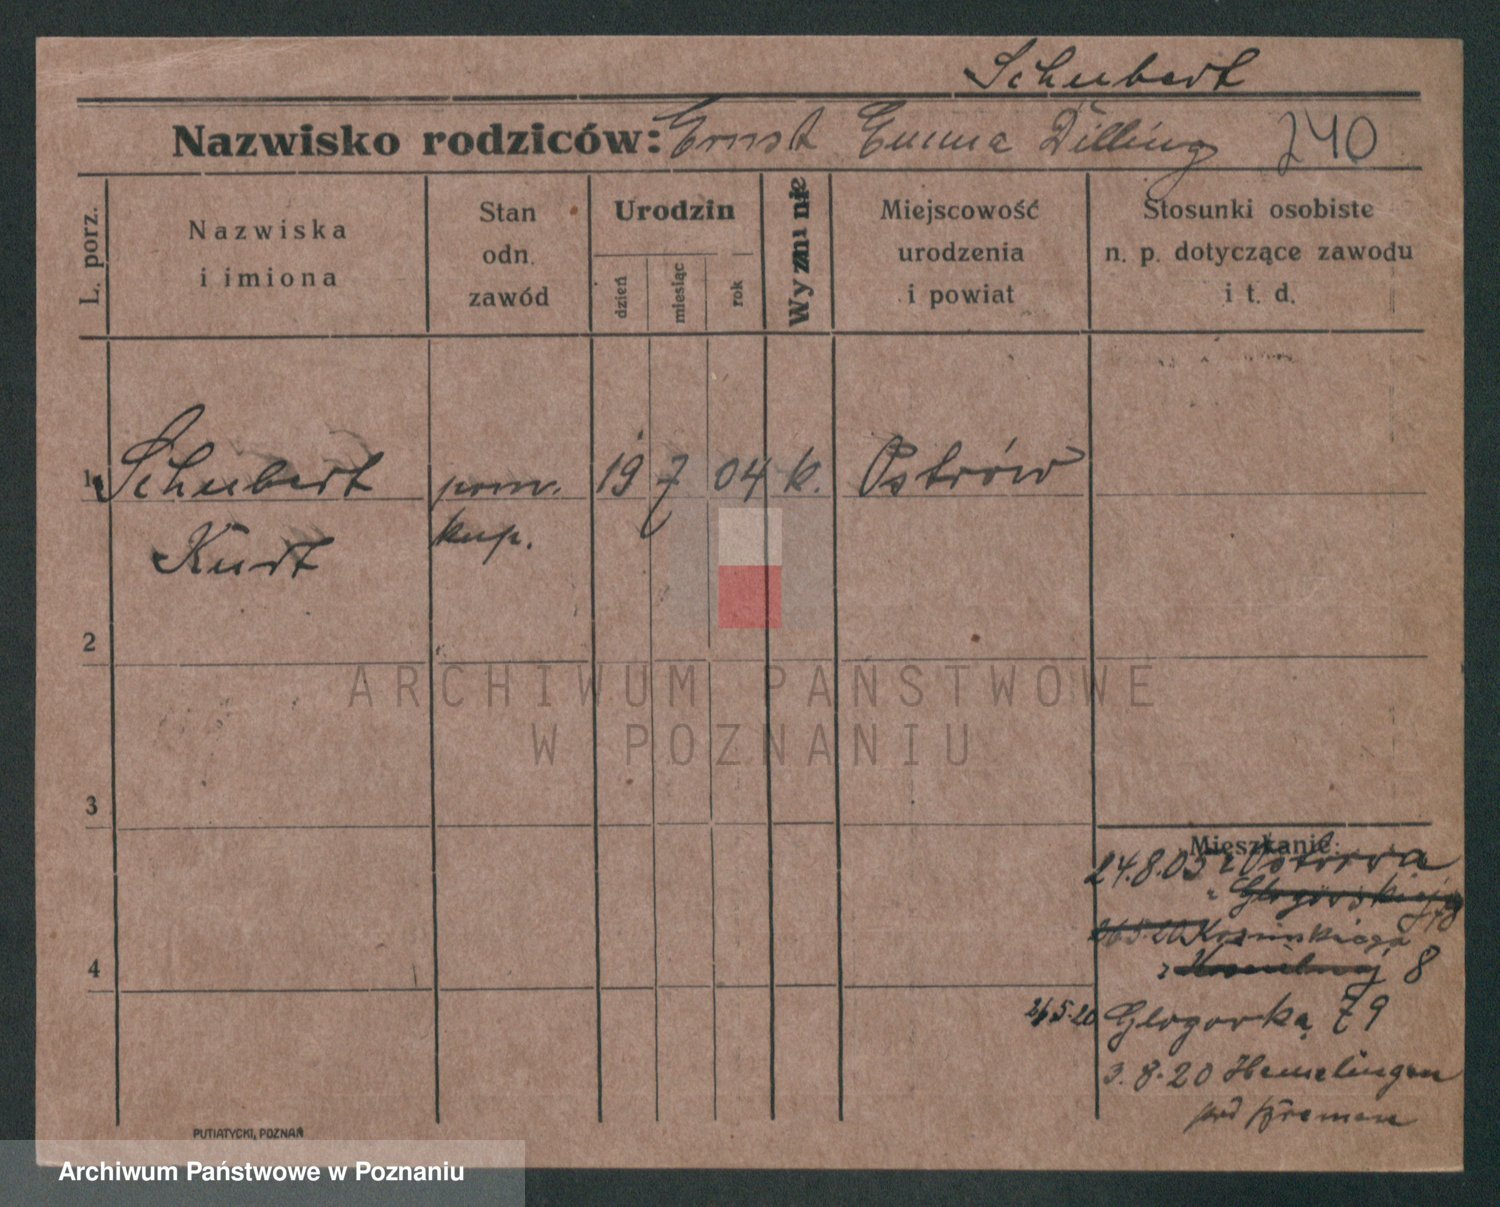 Schubert
Nazwisko rodziców: Ernst Emma Dilling 240
L. porz.
Nazwiska i imiona
Stan odn. zawód
Urodzin
dzień
miesiąc
rok
Miejscowość urodzenia i powiat
Stosunki osobiste n. p. dotyczące zawodu i t. d.
1 Schubert pom. 19 7 04 k. Ostrów
Kurt kup.
2
ARCHIWUM PAŃSTWOWE
W POZNANIU
3
Mieszkanie:
24.8.05 z Ostrowa
4
8
26.5.20 Glogowska 79
3.8.20 Hemelingen
pod Bremen
PUTIATYCKI, POZNAŃ
Archiwum Państwowe w Poznaniu